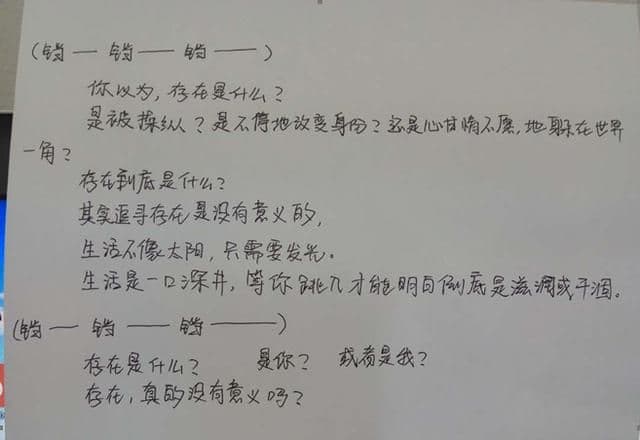 (铛— 铛— 铛——)
你以为,存在是什么?
是被操纵?是不停地改变身份?还是心甘情不愿,地躲在世界
一角?
存在到底是什么?
其实追寻存在是没有意义的,
生活不像太阳,只需要发光。
生活是一口深井,等你跳入才能明白倒底是滋润或干涸。
(铛— 铛— 铛——)
存在是什么? 是你? 或者是我?
存在,真的没有意义吗?